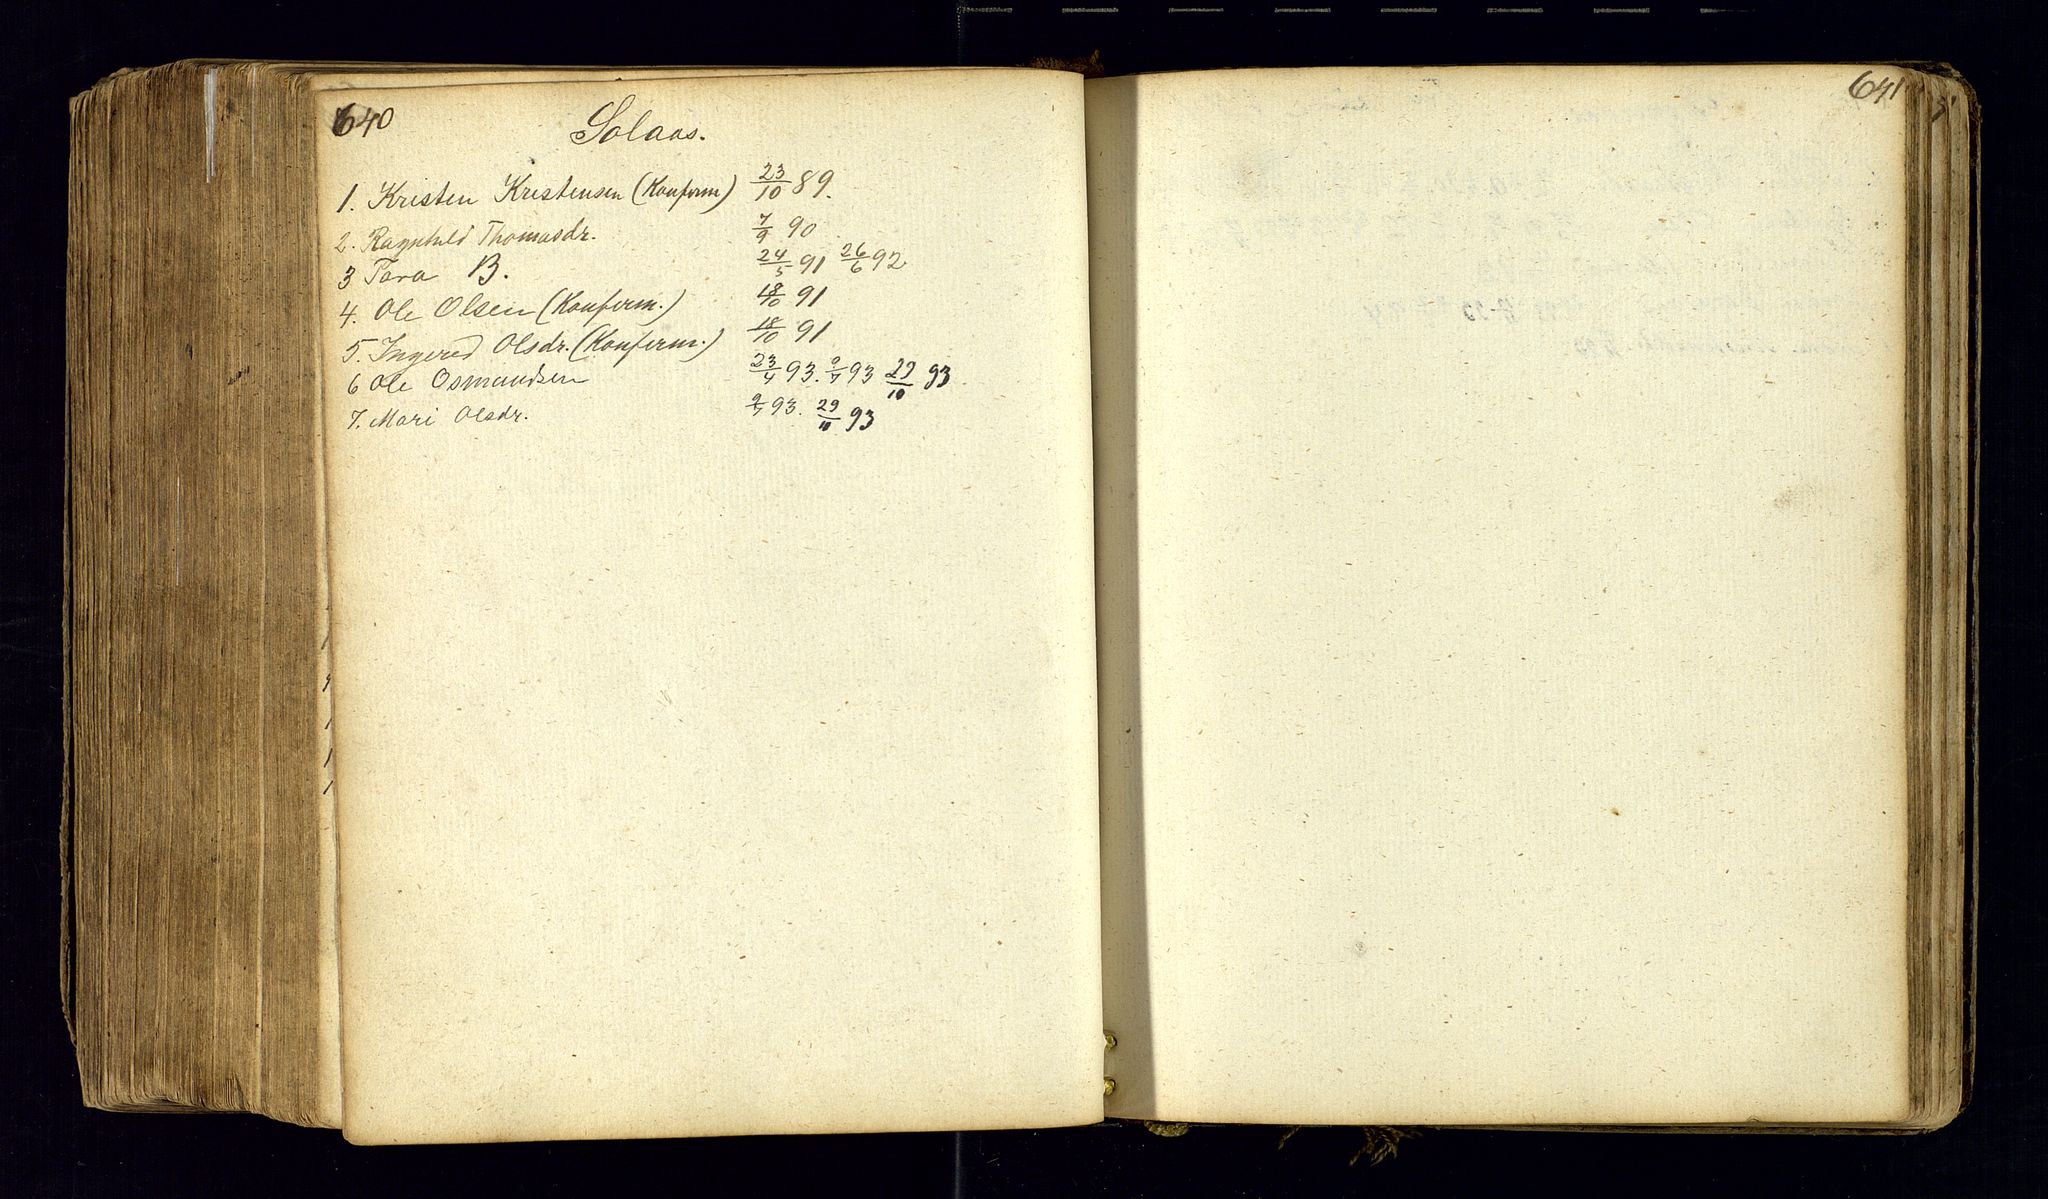 640
Solaas.
1. Kristen Kristensen (Konfirm) 23/10 89.
2. Ragnhild Thomasdr. 7/9 90
3 Tara B. 24/5 91 26/6 92
4. Ole Olsen (Konfirm.) 18/10 91
5. Ingered Olsdr. (Konfirm.) 18/10 91
6 Ole Osmundsen 23/4 93. 9/7 93 29/10 93
7. Mari Olsdr. 9/7 93. 29/10 93
641